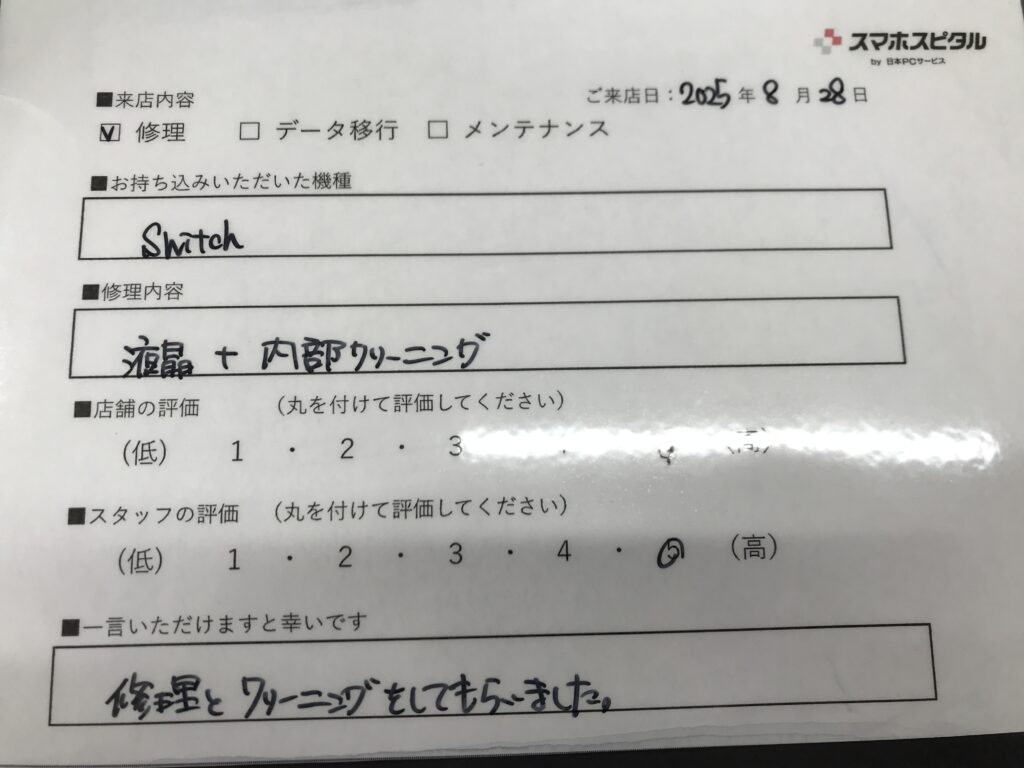 スマホスピタル
by 日本PCサービス
■来店内容
ご来店日：2025年8月28日
☑ 修理 □ データ移行 □ メンテナンス
■お持ち込みいただいた機種
Switch
■修理内容
液晶 + 内部クリーニング
■店舗の評価 （丸を付けて評価してください）
（低） 1 ・ 2 ・ 3 （高）
■スタッフの評価 （丸を付けて評価してください）
（低） 1 ・ 2 ・ 3 ・ 4 ・ 5 （高）
■一言いただけますと幸いです
修理とクリーニングをしてもらいました。